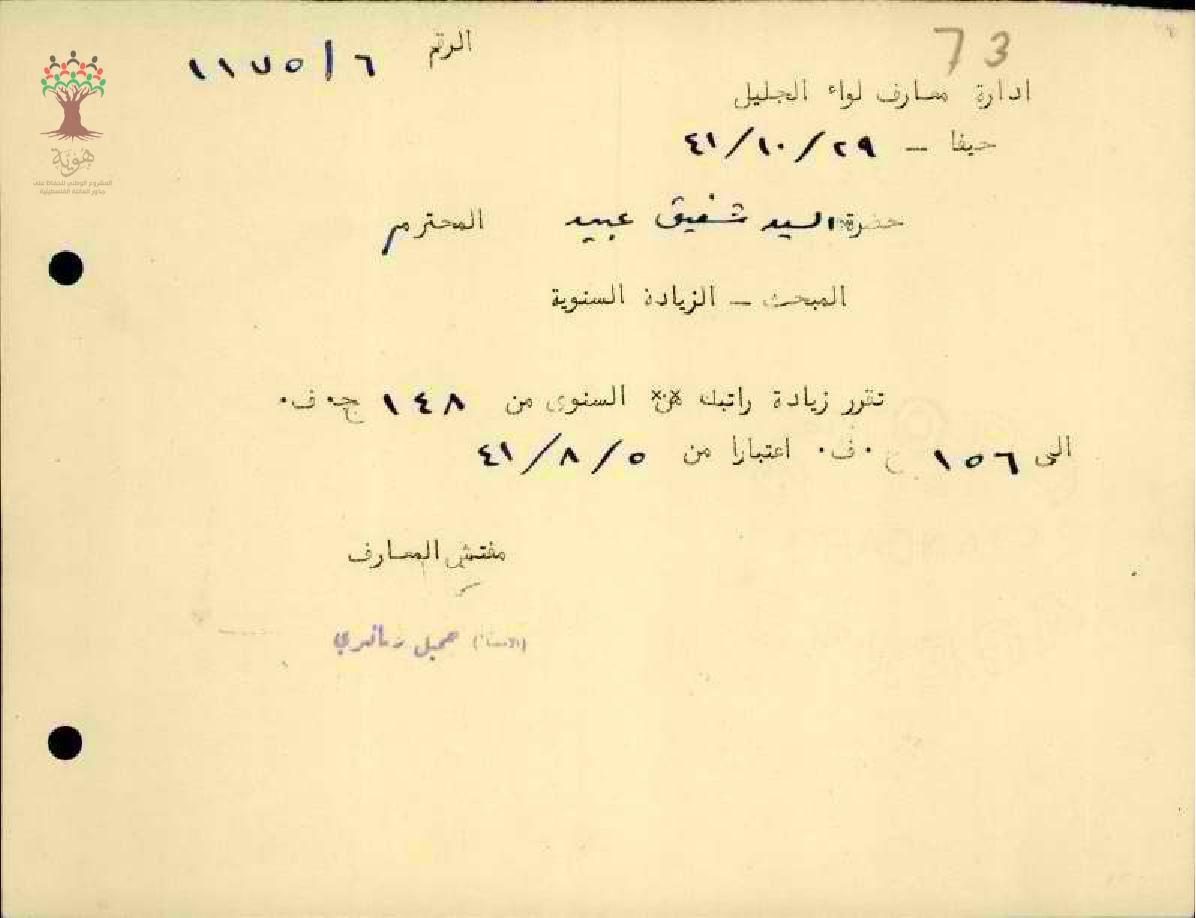 73
الرقم ٦/١١٧٥
ادارة معارف لواء الجليل
حيفا – ٢٩/١٠/٤١
حضرة السيد شفيق عبيد المحترم
المبحث – الزيادة السنوية
تقرر زيادة راتبك السنوى من ١٤٨ ج.ف.
الى ١٥٦ ج.ف. اعتبارا من ٥/٨/٤١
مفتش المعارف
(الامضاء) جميل
هوية
المشروع الوطني للحفاظ على
جذور العائلة الفلسطينية